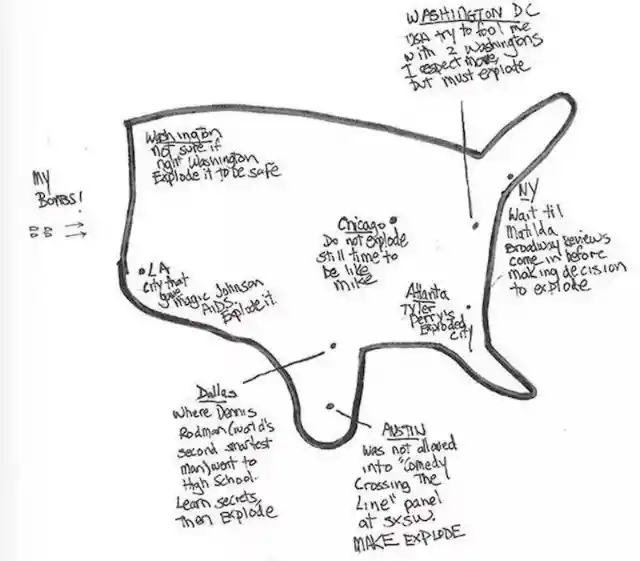 WASHINGTON DC
USA try to fool me
with 2 Washingtons
I respect move,
but must explode
Washington
Not sure if
right Washington
Explode it to be safe
MY
BOMBS!
NY
Wait til
Matilda
Broadway Reviews
come in before
making decision
to explode
Chicago
Do not explode
still time to
be like
Mike
LA
city that
gave
Magic Johnson
AIDS.
Explode it.
Atlanta
Tyler
Perry's
Exploded
City
Dallas
Where Dennis
Rodman (world's
second smartest
man) went to
High School.
Learn secrets,
then Explode
AUSTIN
Was not allowed
into "Comedy
Crossing The
Line" panel
at SXSW.
MAKE EXPLODE